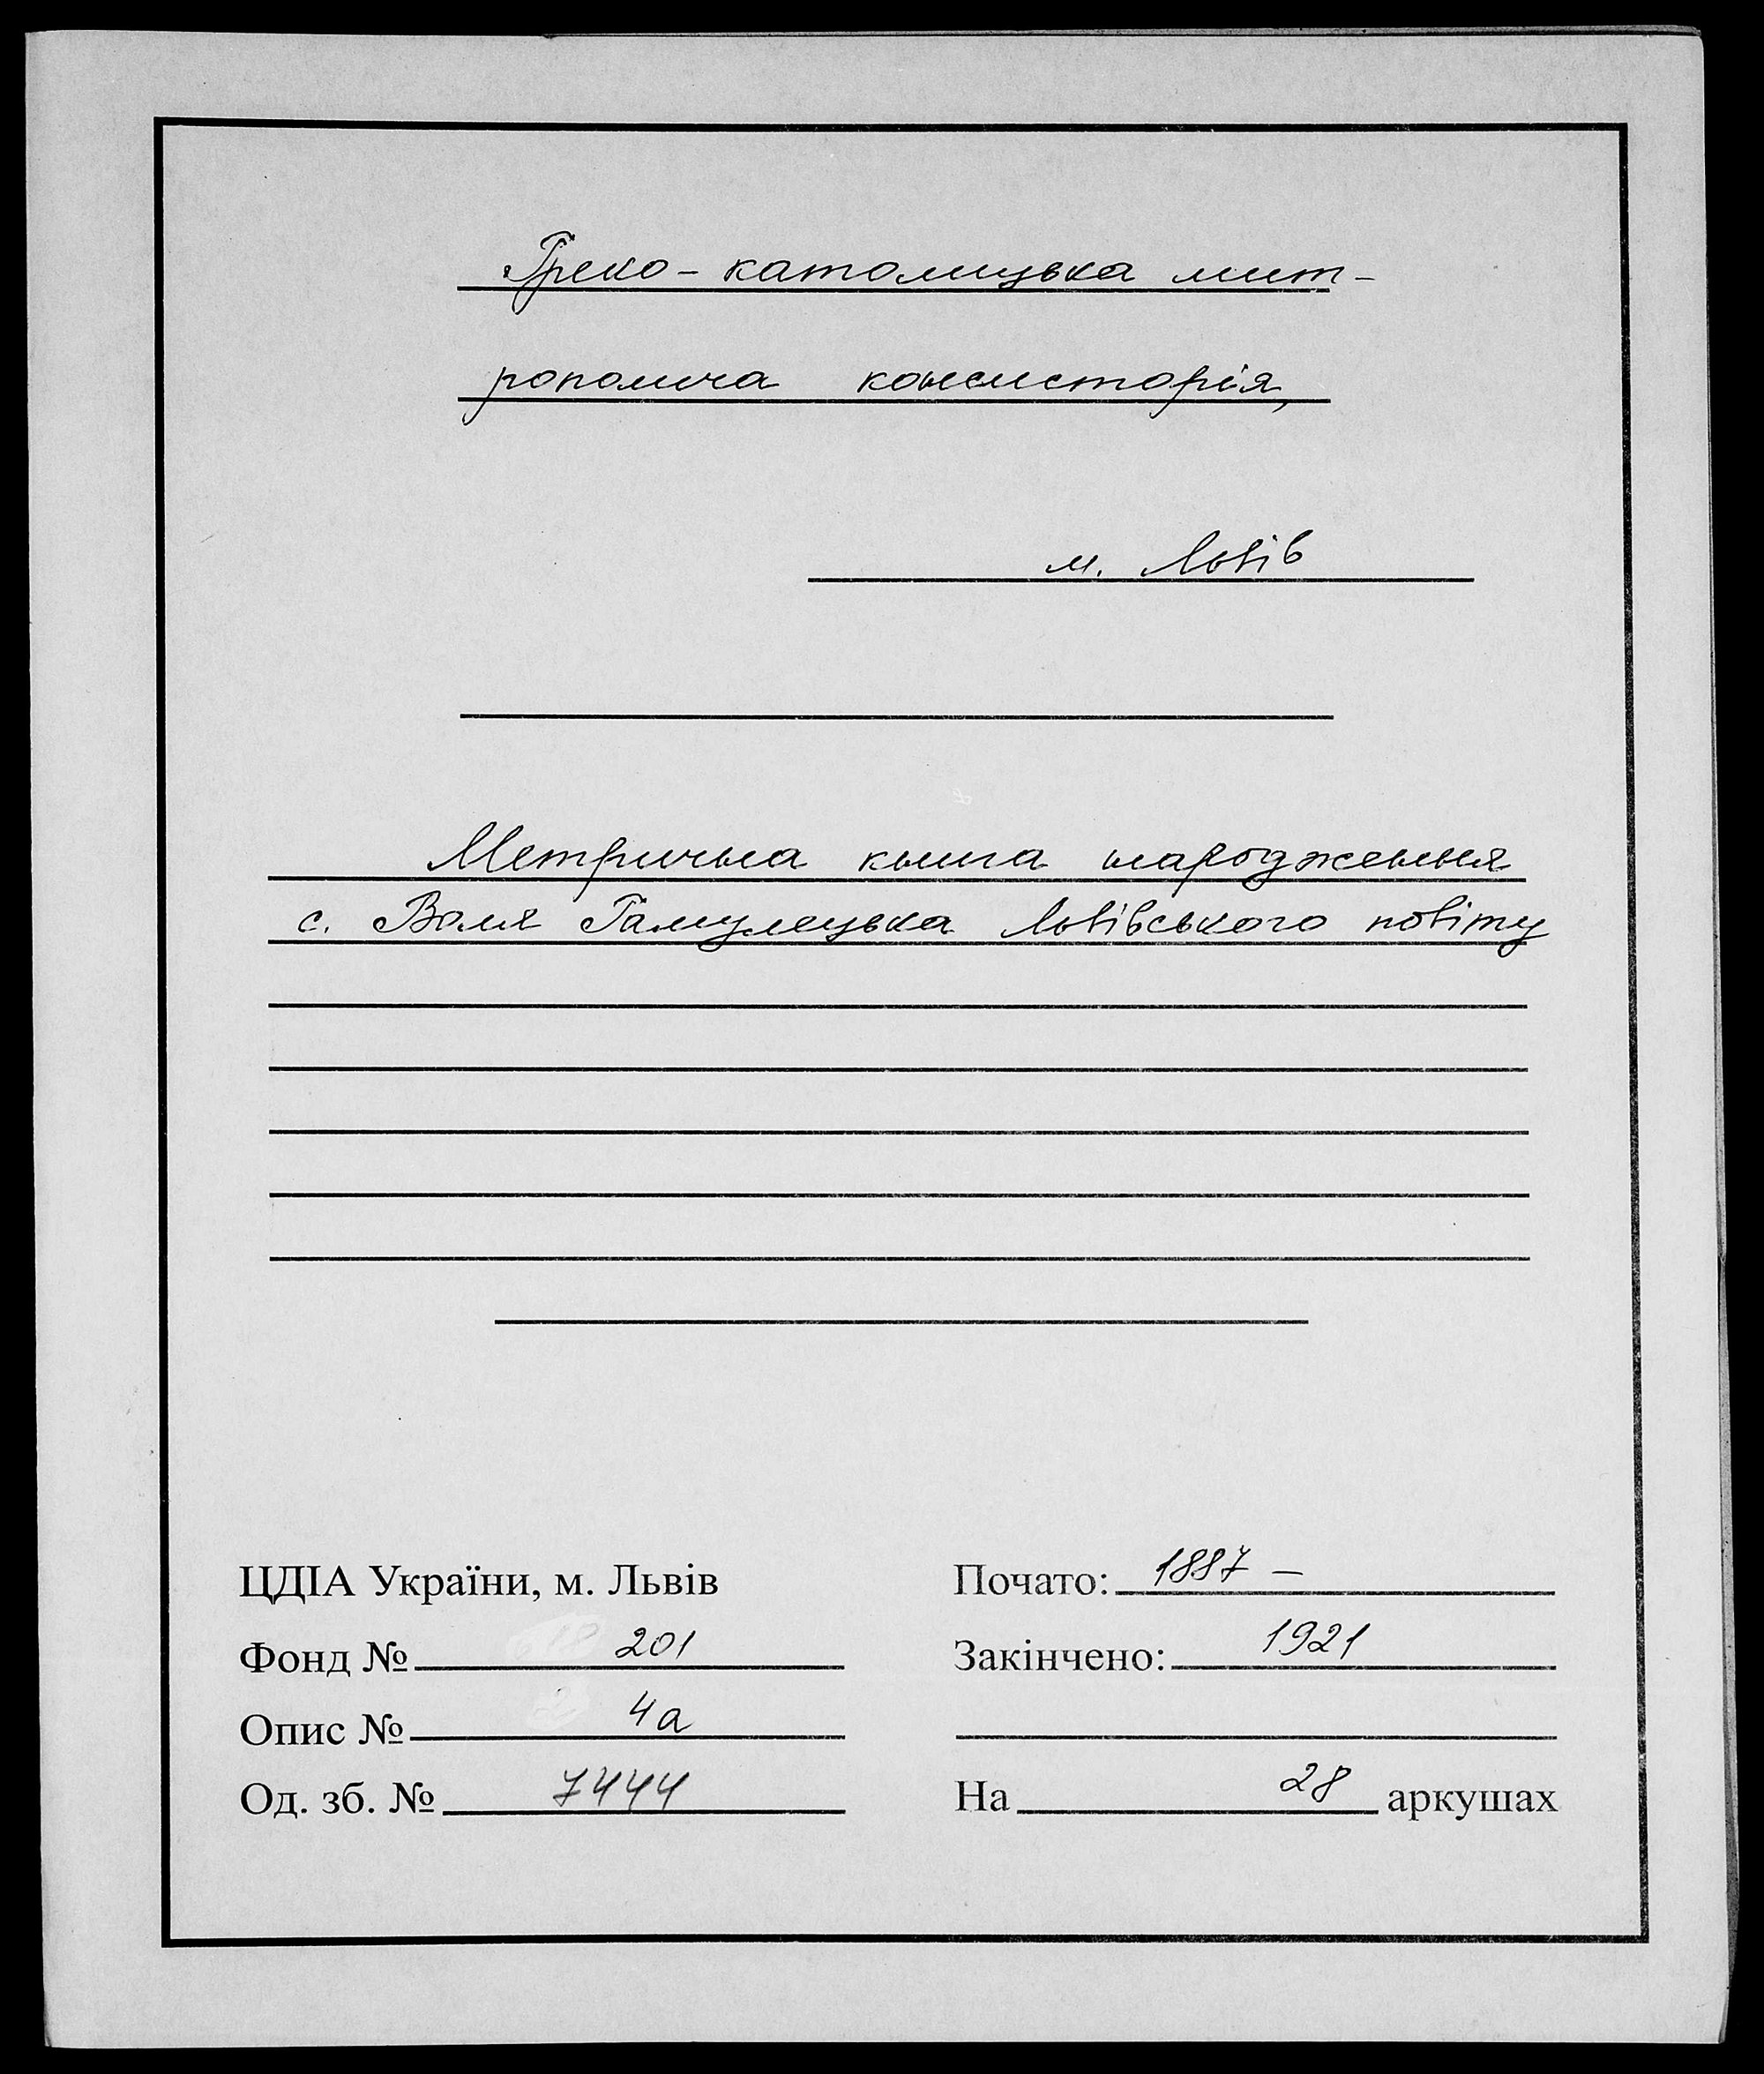 Греко-католицька мит-
рополича консисторія,
м. Львів
Метрична книга народження
с. Воля Гамулецька Львівського повіту
ЦДІА України, м. Львів
Фонд № 201
Опис № 4а
Од. зб. № 7444
Почато: 1887 –
Закінчено: 1921
На 28 аркушах